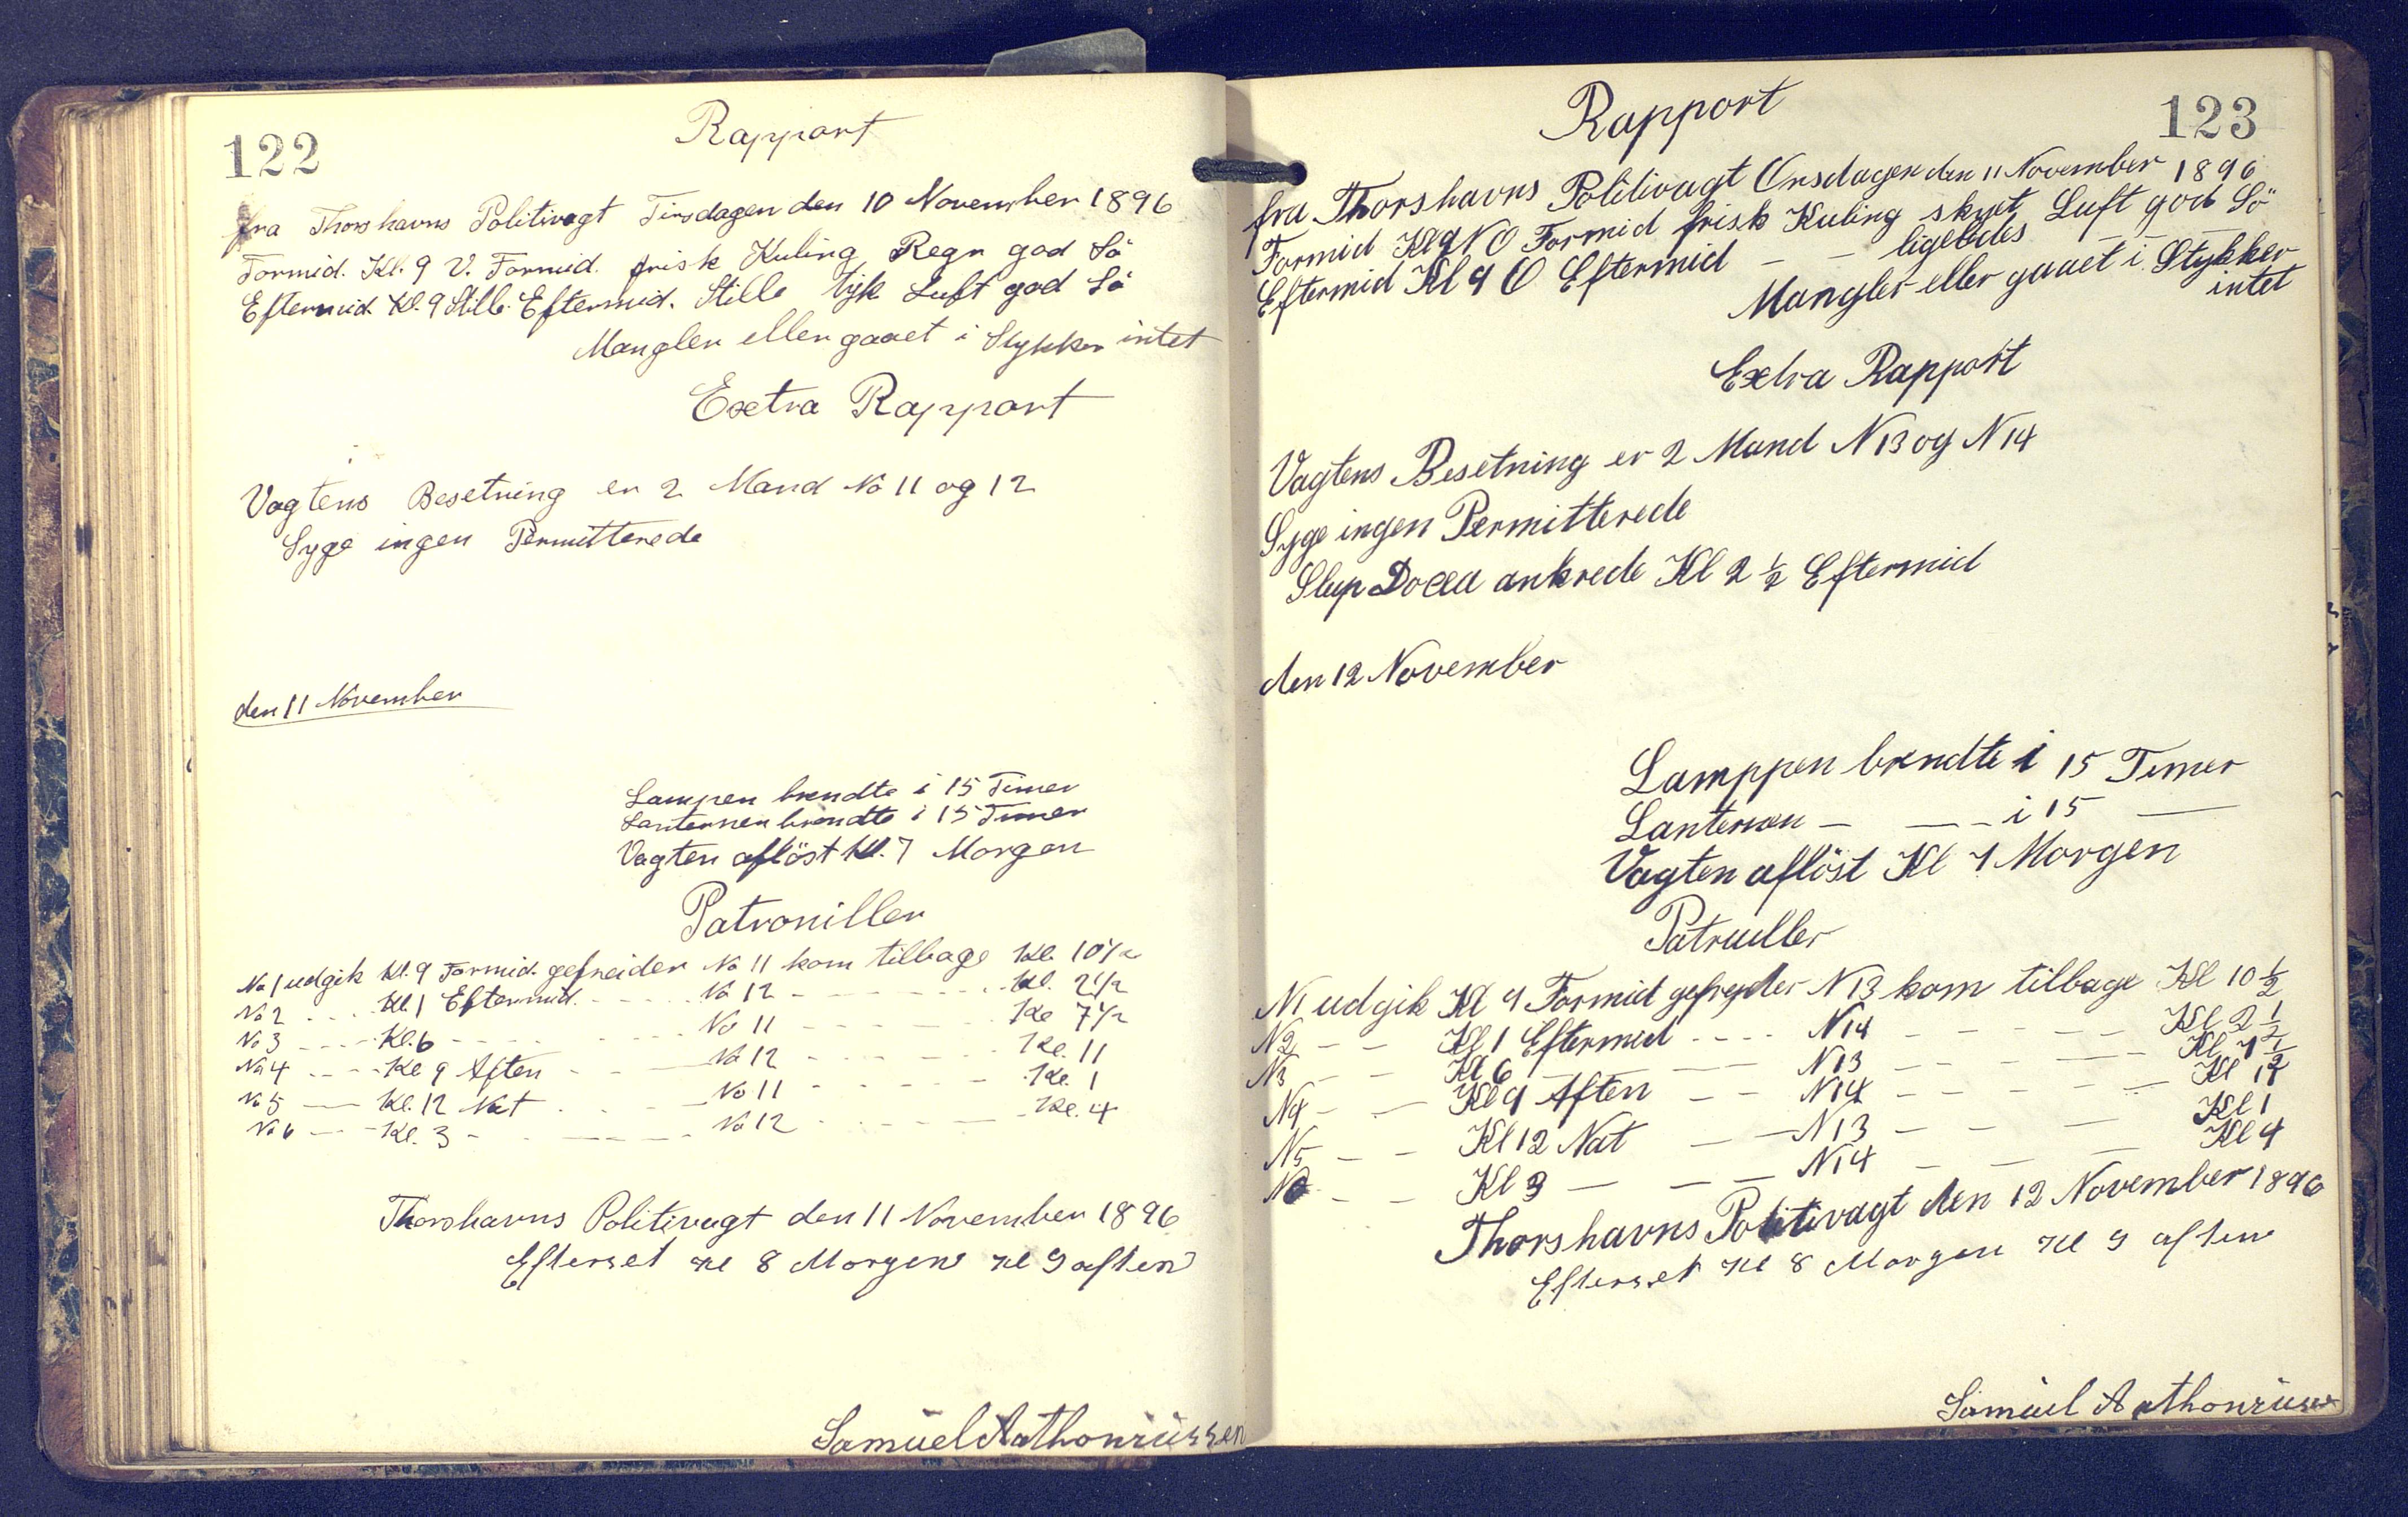 122
Rapport
fra Thorshavns Politivagt Tirsdagen den 10 November 1896
Formid. Kl. 9 V. Formid. frisk Kuling Regn god Sö
Eftermid. Kl. 9 Stille Eftermid. Stille tyk Luft god Sö
Mangler eller gaaet i Stykker intet
Extra Rapport
Vagtens Besetning er 2 Mand No 11 og 12
Syge ingen Permitterede
den 11 November
Lampen brendte i 15 Timer
Lanternen brendte i 15 Timer
Vagten aflöst Kl. 7 Morgen
Patrouiller
No 1 udgik Kl. 9 Formid. gefreider No 11 kom tilbage Kl. 10 1/2
No 2 - - - Kl. 1 Eftermid. - - - - No 12 - - - - - - Kl. 2 1/2
No 3 - - - - Kl. 6 - - - - - - - No 11 - - - - - - Kl 7 1/2
No 4 - - - - Kl 9 Aften - - - - No 12 - - - - - - Kl. 11
No 5 — - Kl. 12 Nat - - - — No 11 - - - - - - Kl. 1
No 6 — - - Kl. 3 - - - — — - No 12 - - - - — - Kl. 4
Thorshavns Politivagt den 11 November 1896
Efterset Kl 8 Morgen Kl 9 aften
Samuel Aathoniussen
123
Rapport
fra Thorshavns Politivagt Onsdagen den 11 November 1896
Formid Kl 9 NO Formid frisk Kuling skyet Luft god Sö
Eftermid Kl 9 O Eftermid - - ligeledes — —
Mangler eller gaaet i Stykker
intet
Extra Rapport
Vagtens Besetning er 2 Mand N 13 og N 14
Syge ingen Permitterede
Slup ankrede Kl 2 1/2 Eftermid
den 12 November
Lamppen brendte i 15 Timer
Lanternen — — - i 15 —
Vagten aflöst Kl 7 Morgen
Patruller
N1 udgik Kl 9 Formid gefreyder N 13 kom tilbage Kl 10 1/2
N2 — — Kl 1 Eftermid - - - - N 14 - - - — — Kl 2 1/2
N3 — — Kl 6 — — — N 13 - - — — Kl 7 1/2
N4 - — Kl 9 Aften — — N 14 - - - — — Kl 11
N5 — — Kl 12 Nat — — N 13 — — — Kl 1
N6 — — Kl 3 — — — N 14 — — — Kl 4
Thorshavns Politivagt den 12 November 1896
Efterset Kl 8 Morgen Kl 9 aften
Samuel Aathoniussen